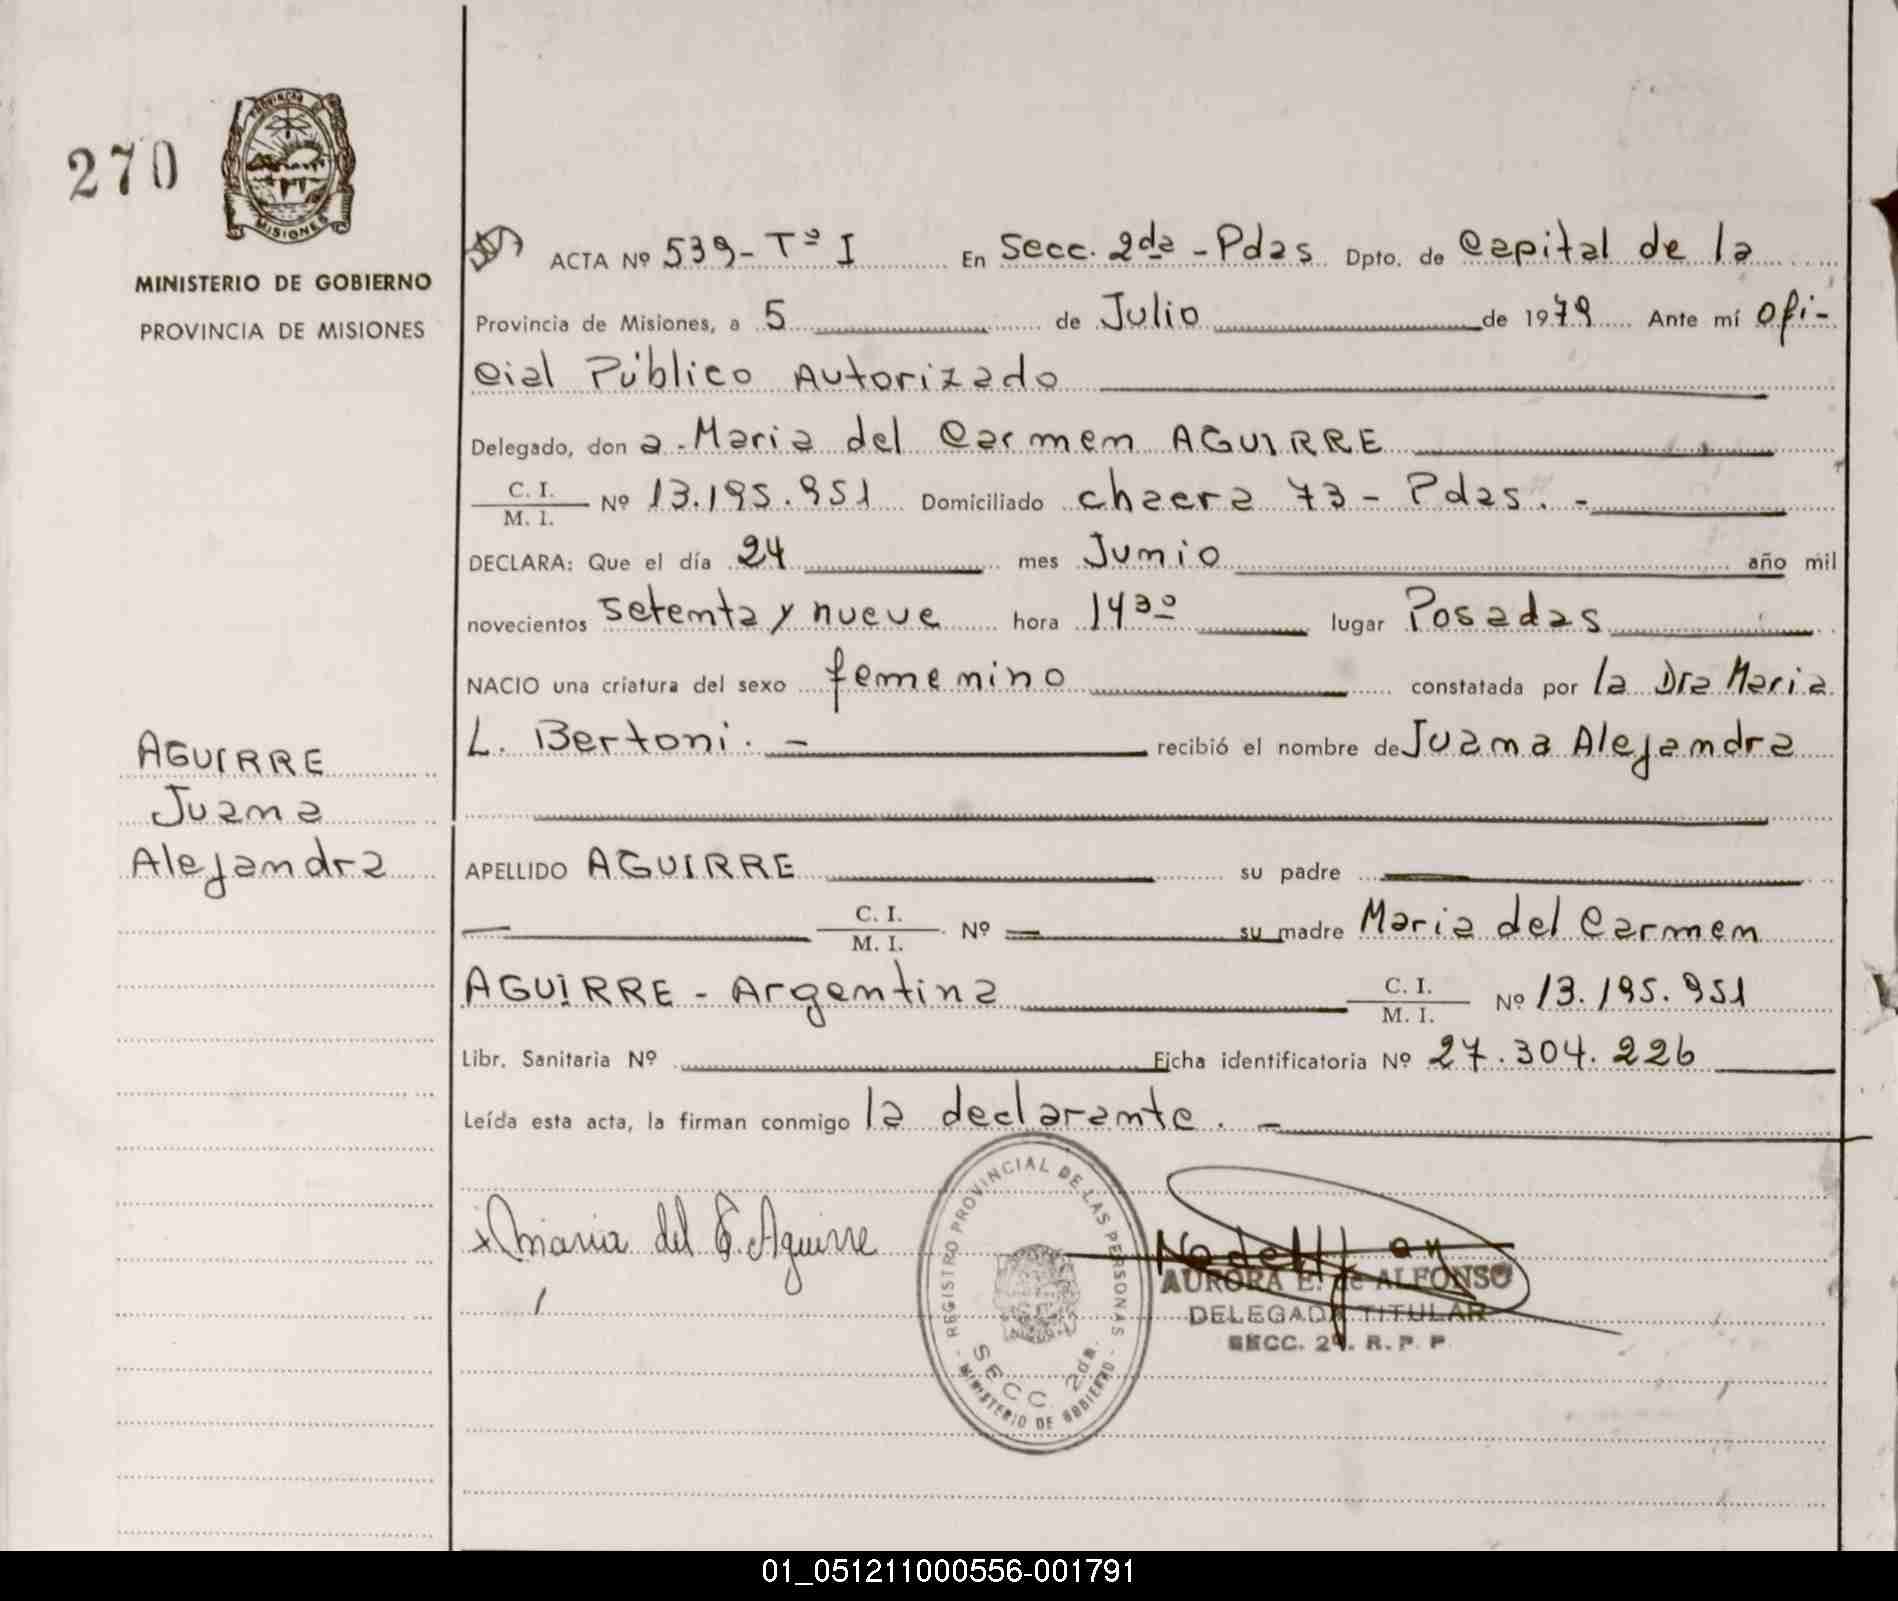 270
PROVINCIA
MISIONES
MINISTERIO DE GOBIERNO
PROVINCIA DE MISIONES
ACTA Nº 539-Tº I En Secc. 2da - Pdas Dpto. de Capital de la
Provincia de Misiones, a 5 de Julio de 1979 Ante mí Ofi-
cial Público Autorizado
Delegado, don a - Maria del Carmen AGUIRRE
C. I.
M. I. Nº 13.195.951 Domiciliado chacra 73 - Pdas. -
DECLARA: Que el día 24 mes Junio año mil
novecientos setenta y nueve hora 14 30 lugar Posadas
NACIO una criatura del sexo femenino constatada por la Dra Maria
L. Bertoni. - recibió el nombre de Juana Alejandra
AGUIRRE
Juana
Alejandra
APELLIDO AGUIRRE su padre
C. I.
M. I. Nº su madre Maria del Carmen
AGUIRRE - Argentina C. I.
M. I. Nº 13.195.951
Libr. Sanitaria Nº Ficha identificatoria Nº 27.304.226
Leída esta acta, la firman conmigo la declarante. -
x Maria del C. Aguirre
REGISTRO PROVINCIAL DE LAS PERSONAS
SECC. 2da.
MINISTERIO DE GOBIERNO
AURORA E. de ALFONSO
DELEGADA TITULAR
SECC. 2ª. R. P. P.
01_051211000556-001791